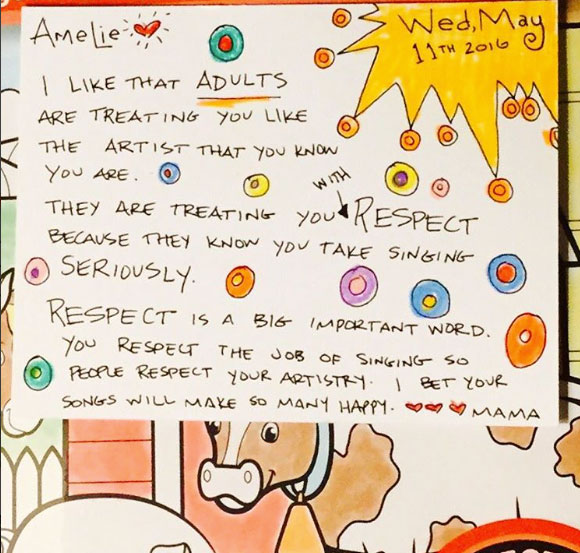 AMELIE
WED, MAY
11TH 2016
I LIKE THAT ADULTS
ARE TREATING YOU LIKE
THE ARTIST THAT YOU KNOW
YOU ARE.
WITH
THEY ARE TREATING YOU RESPECT
BECAUSE THEY KNOW YOU TAKE SINGING
SERIOUSLY.
RESPECT IS A BIG IMPORTANT WORD.
YOU RESPECT THE JOB OF SINGING SO
PEOPLE RESPECT YOUR ARTISTRY. I BET YOUR
SONGS WILL MAKE SO MANY HAPPY. ♥♥♥ MAMA